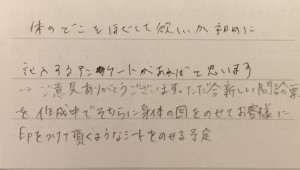 体のどこをほぐして欲しいか初めに
記入するアンケートがあればと思います
→ ご意見ありがとうございます。ただ今新しい問診票
を作成中でそちらに身体の図をのせてお客様に
印をつけて頂くようなシートをのせる予定